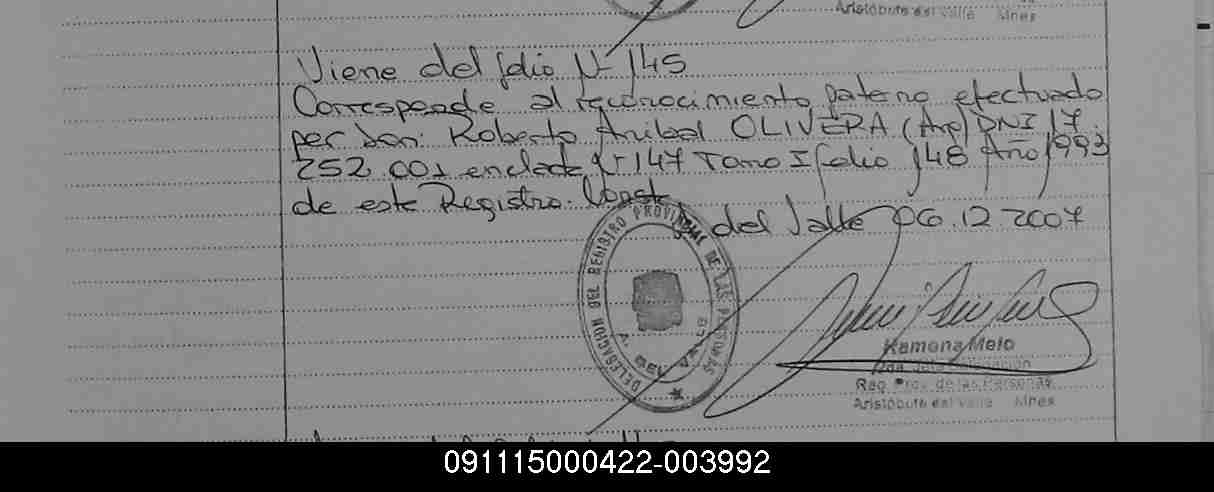 Aristóbulo del Valle Mnes
Viene del folio Nº 145
Corresponde al reconocimiento paterno efectuado
por Don: Roberto Anibal OLIVERA (Arg) DNI 17.
252.001 en el acta Nº 147 Tomo I folio 148 Año 1993
de este Registro. Const
del Valle 06.12.2007
DELEGACION DEL REGISTRO PROVINCIAL DE LAS PERSONAS
A. DEL VALLE
Ramona Melo
Reg. Prov. de las Personas
Aristóbulo del Valle Mnes
091115000422-003992